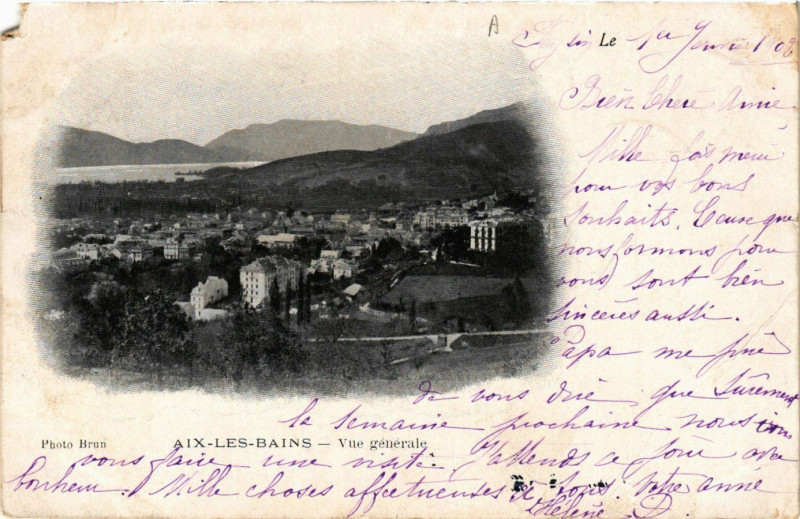 A
Le 1er Janvier 1902
Bien chère Amie
Mille fois merci
pour vos bons
souhaits. Ceux que
nous formons pour
vous sont bien
sincères aussi.
Papa me prie
de vous dire que sûrement
la semaine prochaine nous irons
Photo Brun
AIX-LES-BAINS — Vue générale
vous faire une visite. J'attends ce jour avec
bonheur. Mille choses affectueuses à tous. Votre amie
Hélène D.